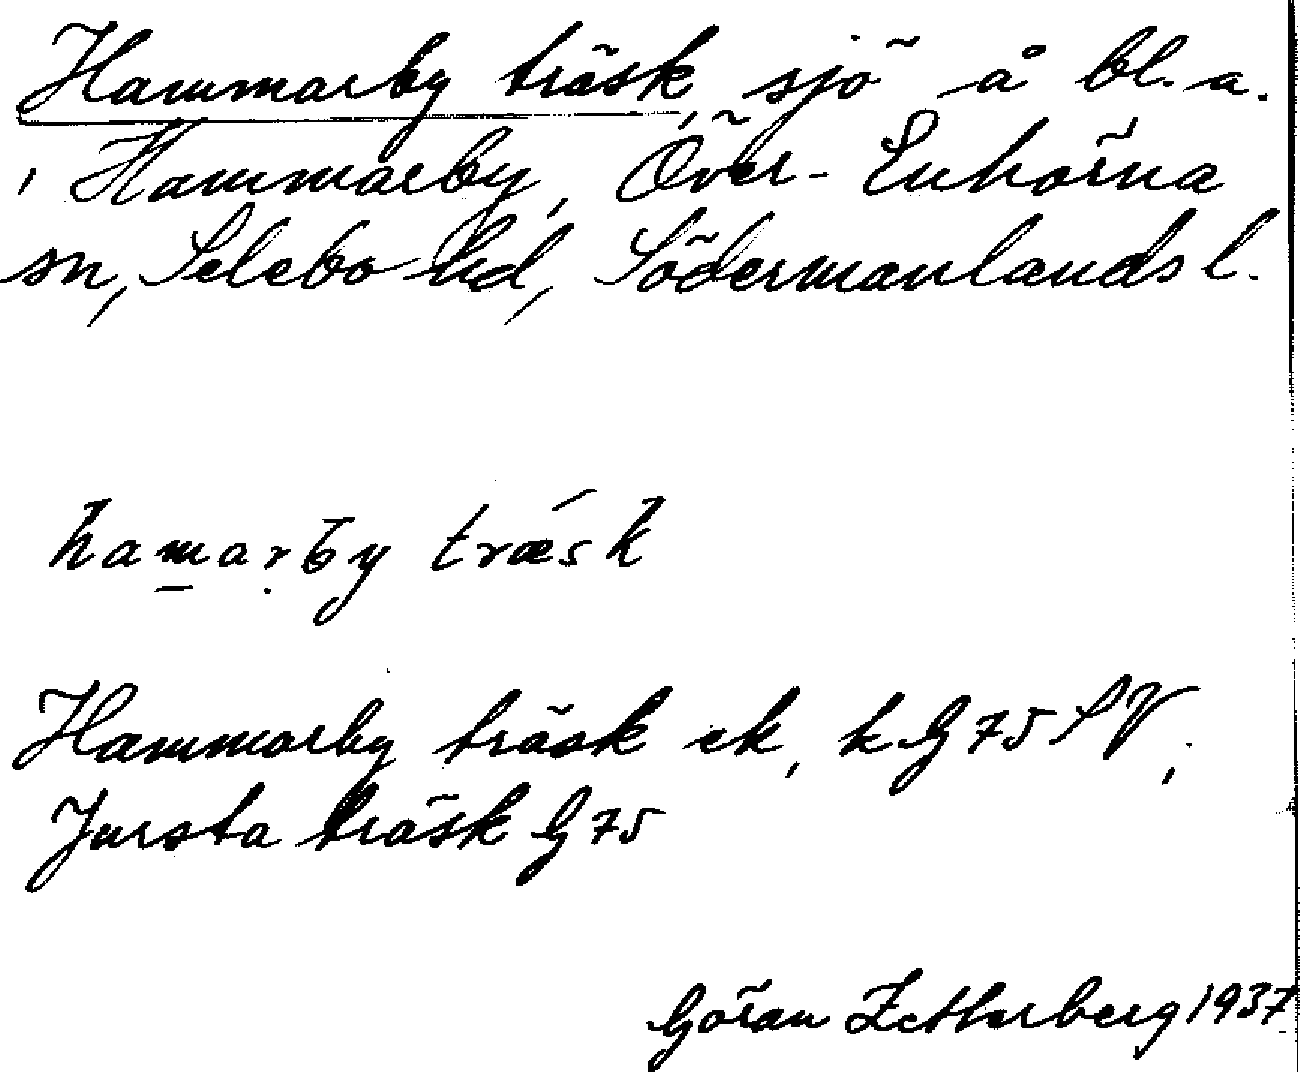 Hammarby träsk, sjö å bl. a.
i Hammarby, Över-Enhörna
sn, Selebo hd, Södermanlands l.
hamarby træsk
Hammarby träsk ek, k. G 75 SV,
Jursta träsk G 75
Göran Zetterberg 1937